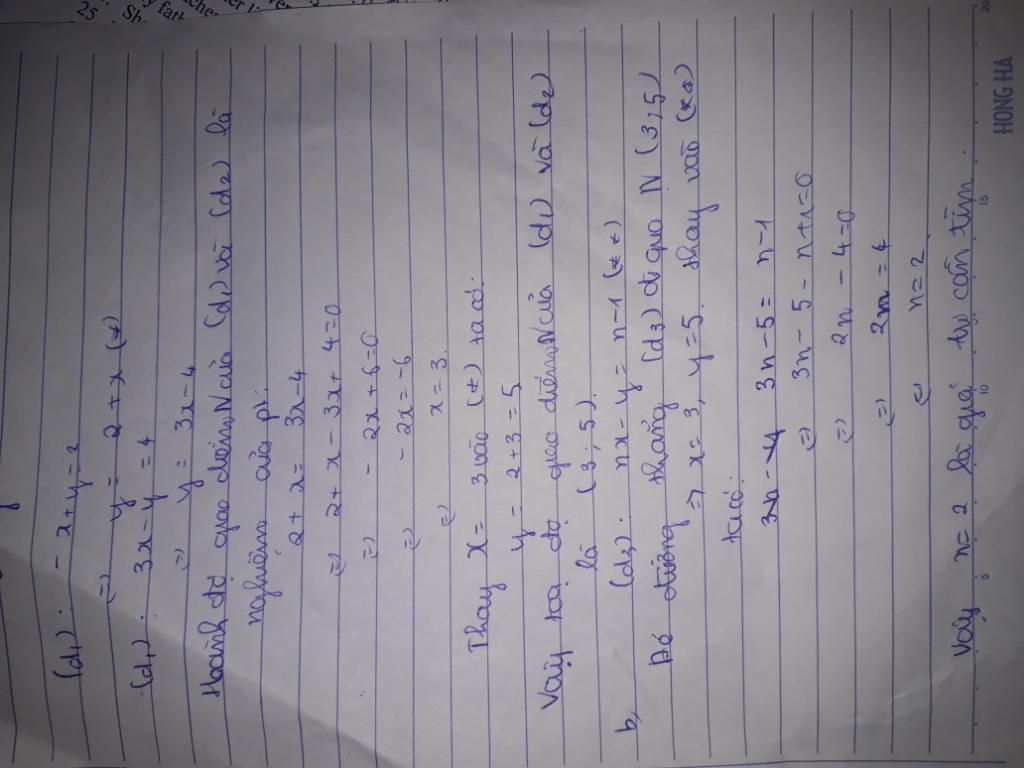 25. Sh
(d1): -x+y=2
(=) y = 2+x (*)
(d1): 3x-y=4
(=) y = 3x-4
Hoành độ giao điểm N của (d1) và (d2) là
nghiệm của pt:
2+x = 3x-4
(=) 2+x-3x+4=0
(=) -2x+6=0
(=) -2x=-6
(=) x=3.
Thay x=3 vào (*) ta có:
y = 2+3=5
Vậy toạ độ giao điểm N của (d1) và (d2)
là (3;5).
b, (d3): nx-y = n-1 (**)
Để đường thẳng (d3) đi qua N (3;5)
=> x=3, y=5. thay vào (**)
ta có:
3n-5= n-1
(=) 3n-5-n+1=0
(=) 2n-4=0
(=) 2n=4
(=) n=2.
Vậy n=2 là giá trị cần tìm.
5 10 15 20
HONG HA